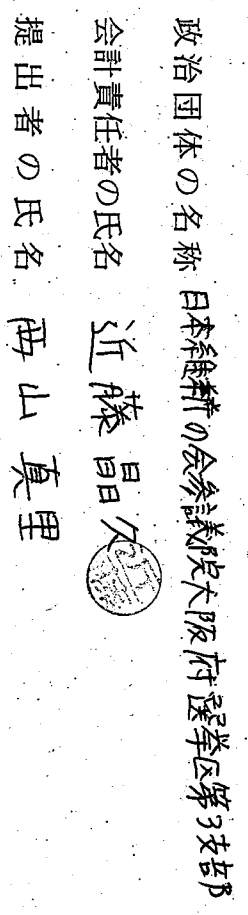 政治団体の名称 日本維新の会参議院大阪府選挙区第3支部
会計責任者の氏名 近藤晶久
提出者の氏名 西山真里